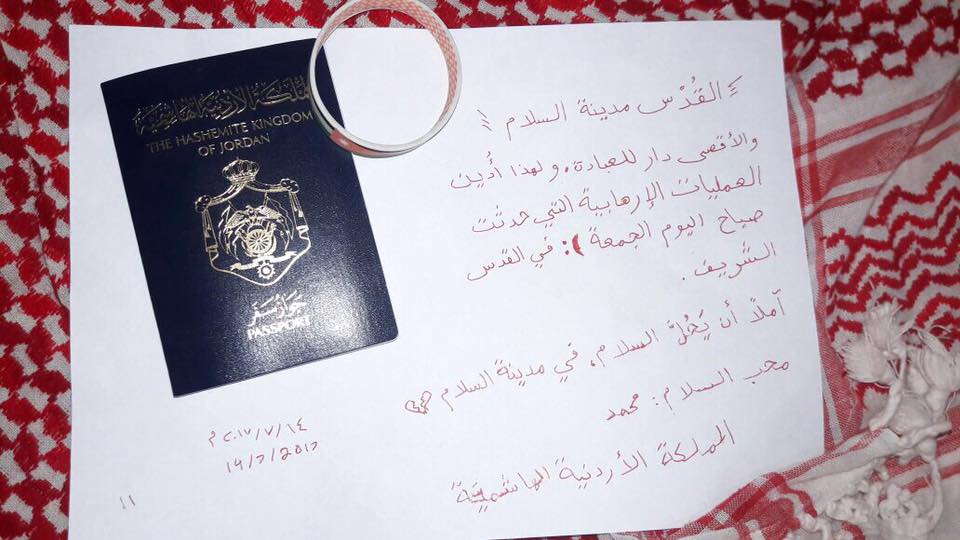 المملكة الأردنية الهاشمية
THE HASHEMITE KINGDOM
OF JORDAN
جواز سفر
PASSPORT
القُدْس مدينة السلام
والأقصى دار للعبادة، ولهذا أُدين
العمليات الإرهابية التي حدثت
صباح اليوم الجمعة ): في القدس
الشريف.
آملاً أن يَحُلَّ السلام، في مدينة السلام
محب السلام: محمد
المملكة الأردنية الهاشميّة
٢٠١٧/٧/١٤ م
14/7/2017